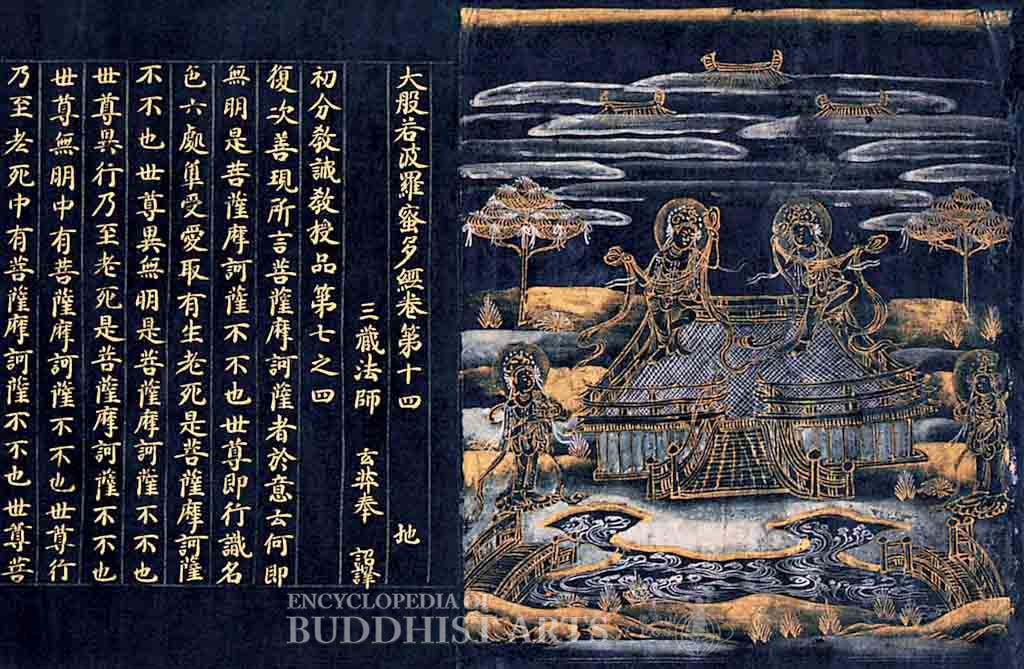 大般若波羅蜜多經卷第十四 地
三藏法師 玄奘奉 詔譯
初分教誡教授品第七之四
復次善現所言菩薩摩訶薩者於意云何即
無明是菩薩摩訶薩不不也世尊即行識名
色六處觸受愛取有生老死是菩薩摩訶薩
不不也世尊異無明是菩薩摩訶薩不不也
世尊異行乃至老死是菩薩摩訶薩不不也
世尊無明中有菩薩摩訶薩不不也世尊行
乃至老死中有菩薩摩訶薩不不也世尊菩
ENCYCLOPEDIA OF
BUDDHIST ARTS